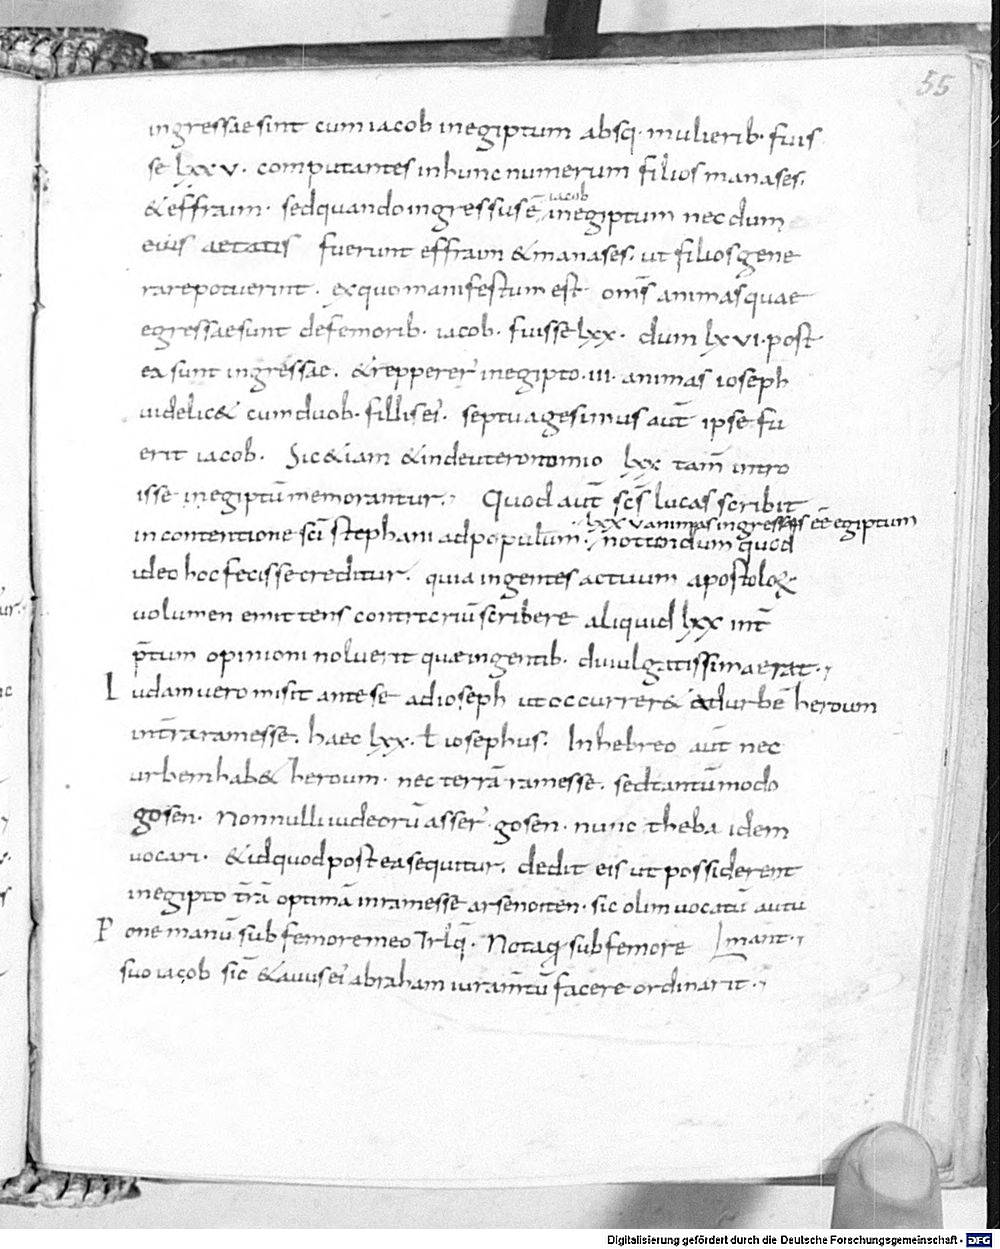 55
ingressae sint cum iacob in egiptum absq· mulierib· fuis
se lxxv· computantes in hunc numerum filios manases,
& effraim· sed quando ingressus ē iacob in egiptum necdum
eius aetatis fuerunt effraim & manases· ut filios gene
rare potuerint· ex quo manifestum est om̄s animas quae
egressae sunt de femorib· iacob· fuisse lxx· dum lxvi· post
ea sunt ingressae· & repperer̄ in egipto· iii· animas ioseph
uidelic& cum duob· filiis ei'· septuagesimus aūt ipse fu
erit iacob· Sic &iam & in deuteronomio lxx tam̄ intro
isse in egiptū memorantur· Quod aūt sc̄s lucas scribit
in contentione sc̄i stephani ad populum· lxxv animas ingressas eē egiptum notandum quod
ideo hoc fecisse creditur· quia in gentes actuum apostoloꝝ·
uolumen emittens contrariū scribere aliquid lxx int̄
p̄tum opinioni noluerit quae in gentib· diuulgatissima erat·
Iudam uero misit ante se ad ioseph ut occurrer& ad urbē heroum
in t̄ra ramesse· haec lxx· ł iosephus· In hebreo aūt nec
urbem hab& heroum· nec terrā ramesse· sed tantūmodo
gosen· Nonnulli iudeorū asser̄ gosen· nunc theba idem
uocari· & id quod postea sequitur· dedit eis ut possiderent
in egipto t̄rā optimā in ramesse arsenoiten· sic olim uocatū autu
Pone manū sub femore meo &rlq̄· Notaq; sub femore mant·
suo iacob sic̄ & auus ei' abraham iuram̄tū facere ordinarit·
Digitalisierung gefördert durch die Deutsche Forschungsgemeinschaft - DFG